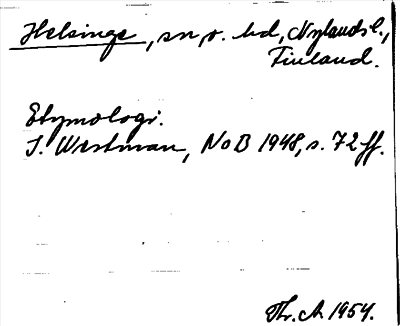 Helsinge, sn o. hd, Nylands l.,
Finland.
Etymologi.
I. Westman, NoB 1948, s. 72 ff.
Thr. A. 1954.